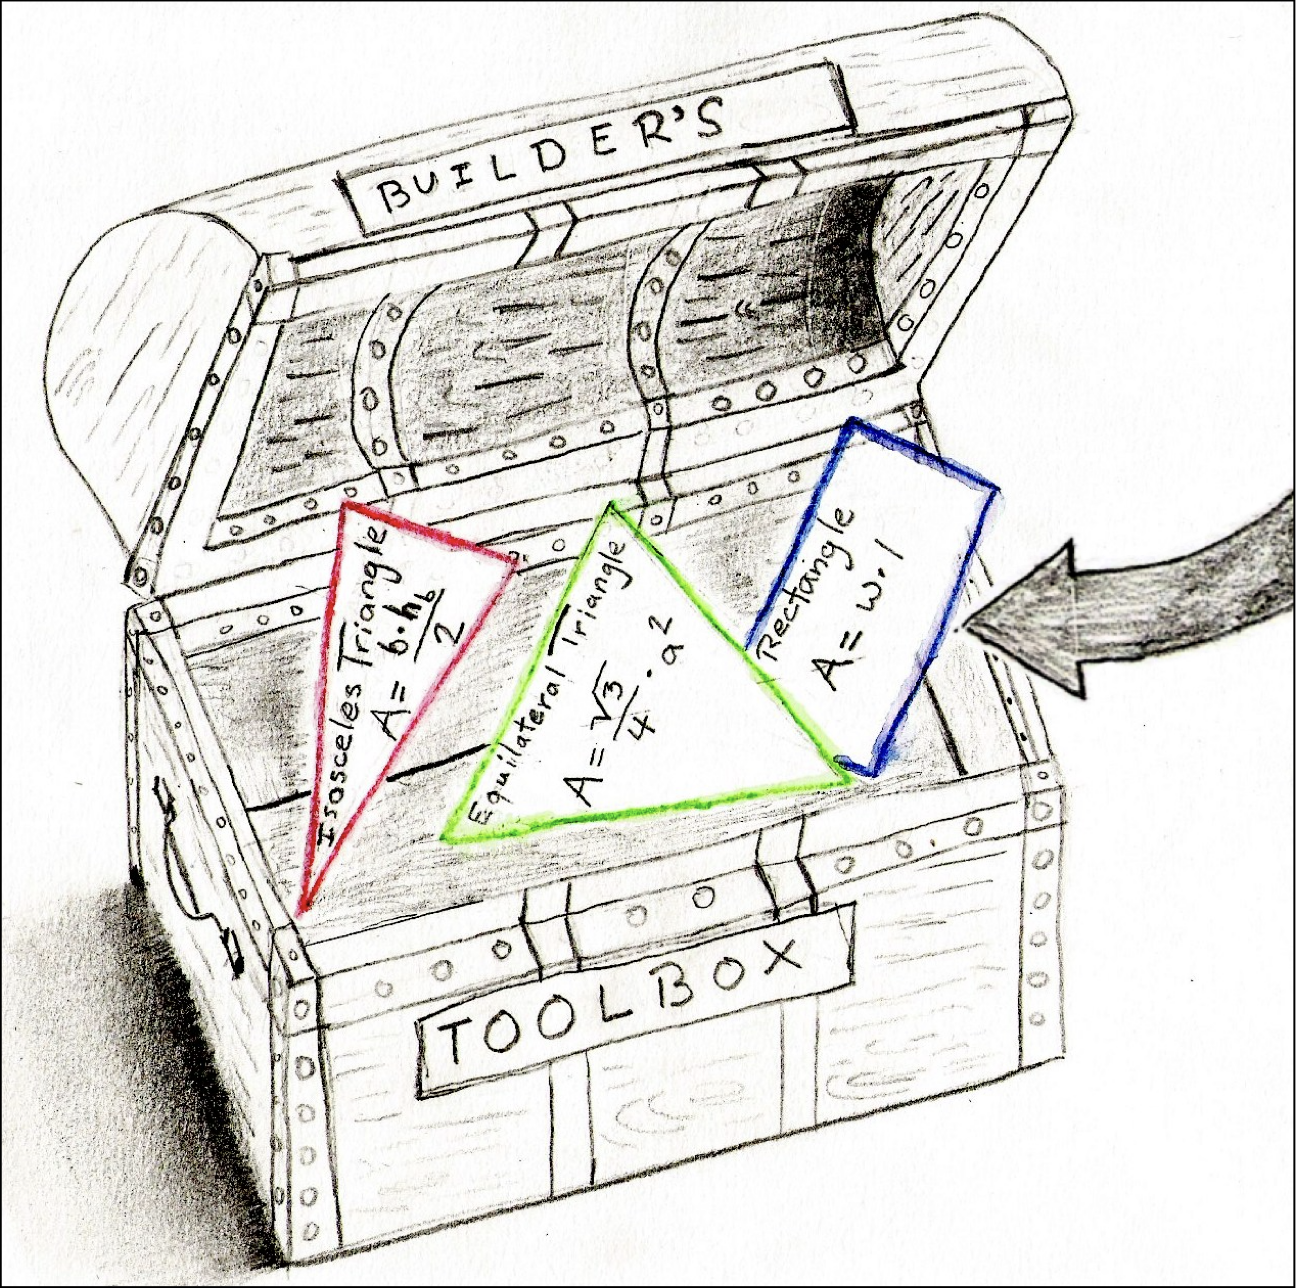 BUILDER'S
Isosceles Triangle
A = b·h_b/2
Equilateral Triangle
A = √3/4 · a²
Rectangle
A = w·l
TOOLBOX